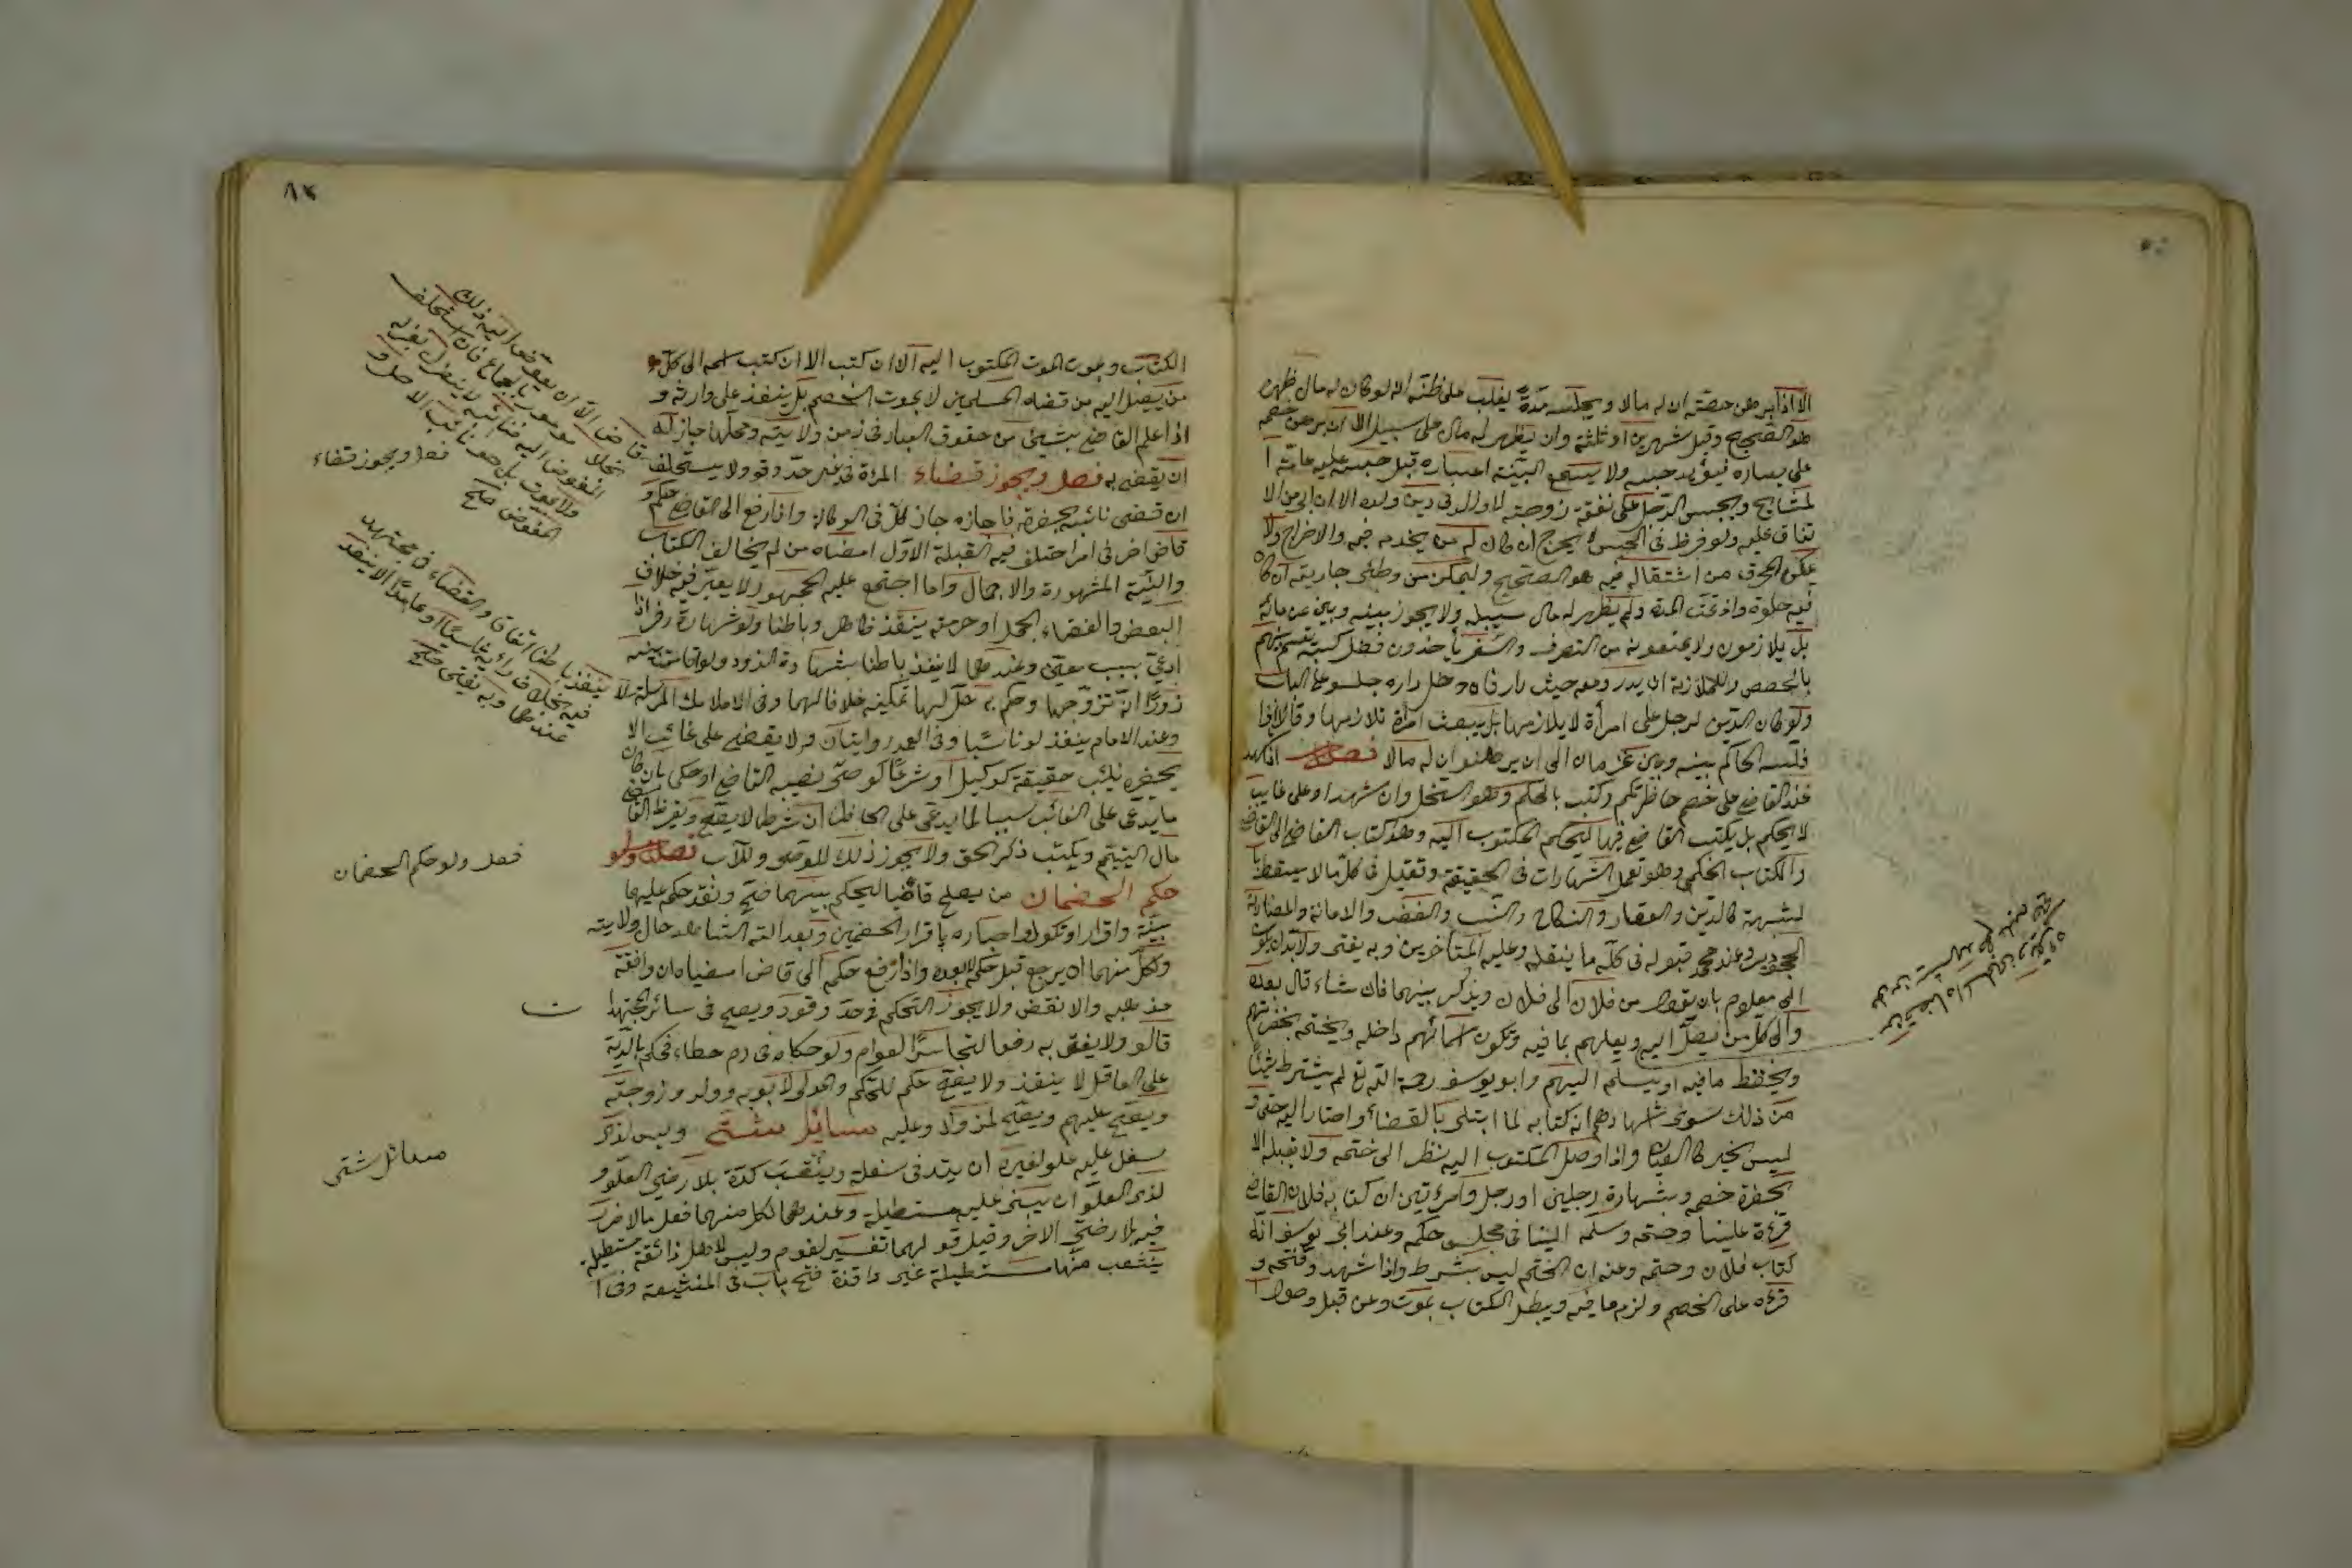 الا اذا برهن خصمه ان له مالا ويحبسه مدة يغلب على ظنه انه لو كان له مال ظهره
هو الصحيح وقيل شهرين او ثلثة وان يظهر له مال على سبيل الا ان برهن خصمه
على يساره فيؤبد حبسه ولا يسمع البينة اعساره قبل حبسه عليه عامة ا
لمشايخ ويحبس الرجل على نفقة زوجته لا والد فى دين ولده الا ان ابى من الا
نفاق عليه ولو مرض فى الحبس لا يخرج ان كان له من يخدمه فيه والا اخرج ولا
يمكن المحترف من اشتغاله فيه هو الصحيح وليمكن من وطئ جاريته ان كان
فيه خلوة واذا تمت المدة ولم يظهر له مال سبيله ولا يجوز بينه وبين غرمائه
بل يلازمونه ولا يمنعونه من التصرف والسفر يأخذون فضل كسبه يقسم بينهم
بالحصص والملازمة ان يدور معه حيث دار فان دخل داره جلسو على الباب
ولو كان الدين لرجل على امرأة لا يلازمها بل يبعث امرأة تلازمها وقالا اذا
فلسه الحاكم بينه وبين غرمائه الى ان يبرهنوا ان له مالا فصل اذا شهد
عند القاضى على خصم حاضر حكم وكتب بالحكم وهو السجل وان شهدوا على غايب
لا يحكم بل يكتب القاضى فيها ليحكم المكتوب اليه وهو كتاب القاضى الى القاضى
والكتاب الحكمى وهو نقل الشهادات فى الحقيقة وتقبل فى كل ما لا يسقط با
لشبهة كالدين والعقار والنكاح والنسب والغصب والامانة والمضاربة
المجحودين وعند محمد قبوله فى كل ما ينقل وعليه المتأخرين وبه يفتى ولا بد ان يكون
الى معلوم بان يقول من فلان الى فلان ويذكر بينهما فان شاء قال بعده
والى كل من يصل اليه ويعلمهم بما فيه وتكون اسمائهم داخله ويختمه بحضرتهم
ويحفظ ما فيه او يسلم اليهم وابو يوسف رحمة الله تع لم يشترط شيئا
من ذلك سوى شهادهم انه كتابه لما ابتلى بالقضاء واختار اليه حتى و
ليس الخبر كالعيان واذا وصل المكتوب اليه نظر الى ختمه ولا يقبله الا
بحضرة خصم وبشهادة رجلين او رجل وامرءتين ان كتابه فلان القاضى
قرءة علينا وختمه وسلمه الينا فى مجلس حكمه وعند ابى يوسف انه
كتاب فلان وختمه وعنه ان الختم ليس بشرط واذا شهد وفتحه و
قرءه على الخصم ولزم ما فيه ويبطل الكتاب بموت وعن قبل وصول ا
١٧
الكتاب وبموت الموت المكتوب اليه الا ان كتب الا ان كتب اسمه الى كل
من يصل اليه من قضاه المسلمين لا بموت الخصم بل ينفذ على وارثه و
اذا علم القاضى بشيئ من حقوق العباد فى زمن ولايته ومحلها جاز له
ان يقضى به فصل ويجوز قضاء المرأة فى غير حد وقود ولا يستخلف
ان قضى نائبه بحضرته فاجازه جاز كل فى الوكالة واذا رفع الى القاضى حكم
قاض اخر فى امر اختلف فيه القبلة الاول امضاه من لم يخالف الكتاب
والسنة المشهورة والاجماع واما اجتمع عليه الجمهور لا يعتبر فيه خلاف
البعض والقضاء بحل او حرمة ينفذ ظاهر وباطنا ولو شهادة زور اذا
ادعى بسبب معين وعندهما لا ينفذ باطنا بشهادة الزور ولو اقامت بينة
زورا انه تزوجها وحكم به حل لها تمكينه خلافا لهما وفى الاملاك المرسلة لا
وعند الامام ينفذ لو ناسيا وفى العمد روايتان ولا يقضى على غائب الا
بحضرة نائب حقيقة كوكيل او شرعا كوصى نصبه القاضى او حكمى بان كان
ما يدعى على الغائب سببا لما يدعى على الحاضر ان شرطا لا يصح ويقرض القاضى
مال اليتيم ويكتب ذكر الحق ولا يجوز ذلك للوصى وللاب فصل ولو
حكم الخصمان من يصلح قاضيا ليحكم بينهما صح ونفذ حكمه عليهما
بينة واقرار او نكول واخباره باقرار الخصمين وبعدالته الشاهد حال ولايته
ولكل منهما ان يرجع قبل حكمه لا بعده واذا رفع حكم الى قاض امضياه ان وافقه
مذهبه والا نقض ولا يجوز التحكم فى حد وقود ويصح فى سائر المجتهدا ت
قالو ولا يفتى به دفعا لتجاسر العوام ولو حكماه فى دم خطاء فحكم بالدية
على العاقل لا ينفذ ولا يصح حكم للحكم والمولى لابويه وولد وزوجته
ويصح عليهم ويصح لمن ولا وعليه مسائل شتى وليس لذى
سفل عليه علو لغيره ان يتد فى سفله وينقب كوة بلا رضى العلو و
لذى العلو ان يبنى عليه مستطيلة وعندهما لكل منهما فعل ما لا ضرر
فيه بلا رضى الاخر وقيل قولهما تفسير لقوم وليس لاهل ذائقة مستطيلة
ينشعب منها مستطيلة غير نافذة فتح باب فى المنشعبة وفى ا
قاض الا ان يفوض اليه ذلك
بخلاف مأمور بالجماع فان استخلف
المفوض اليه فنائبه لا ينعزل بعزله
ولا بموت بل هو نائب الاصل و
المفوض صح
فصل ويجوز قضاء
ينفذ باطنا اتفاق والقضاء فى مجتهد
فيه بخلاف رأيه ناسيا او عامدا لا ينفذ
عندهما وبه يفتى صح
فصل ولو حكم الخصمان
مسائل شتى